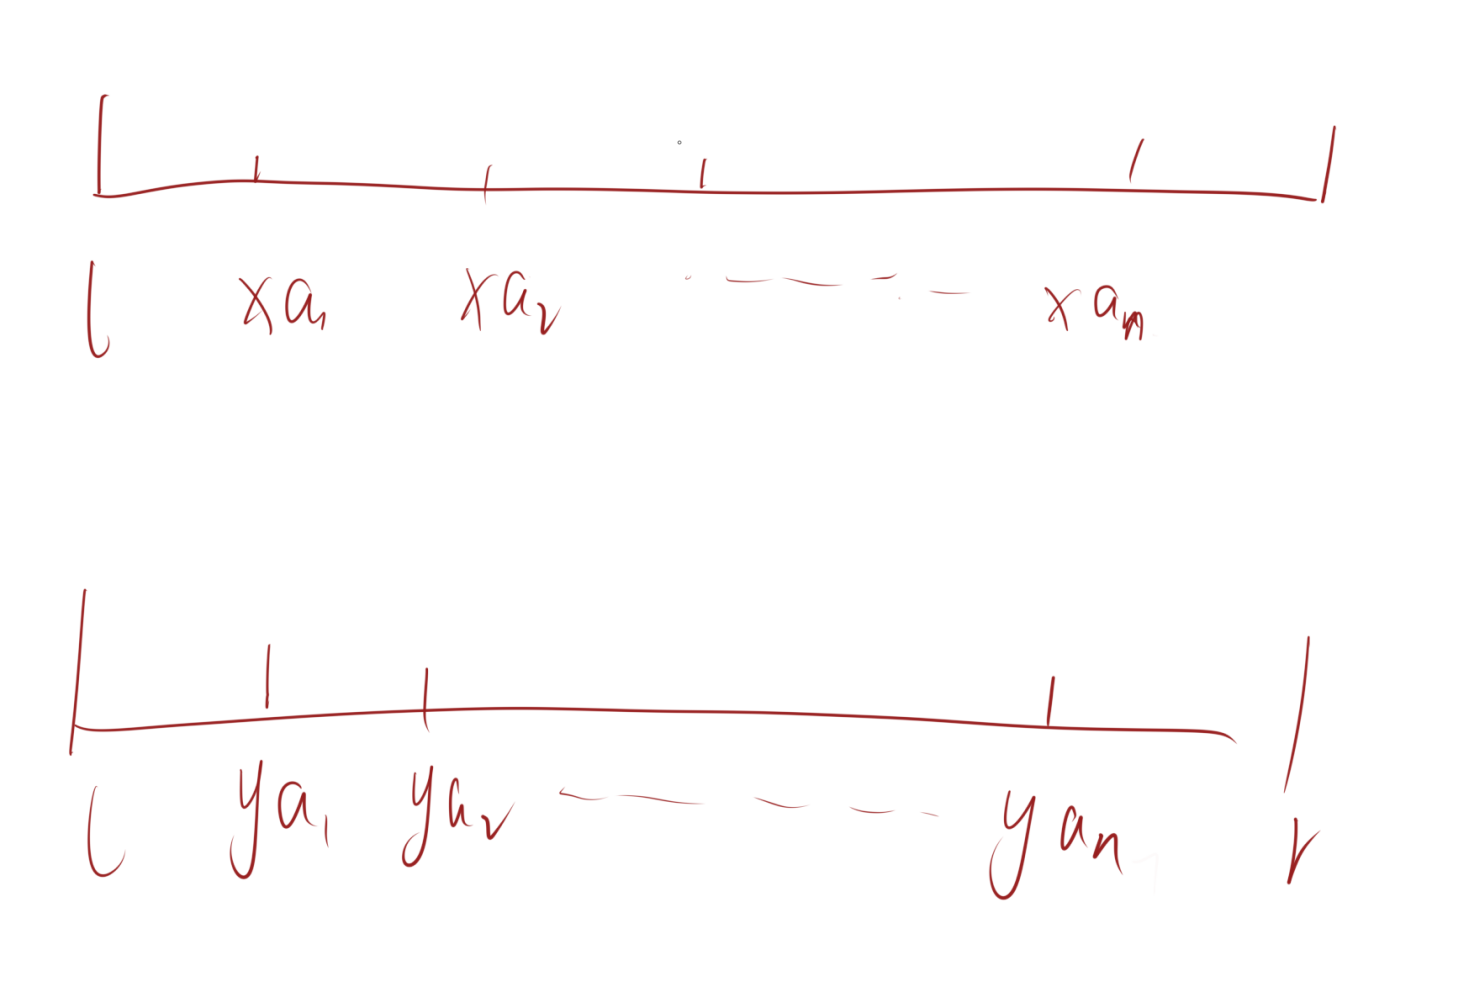 l xa₁ xa₂ - - - - xaₙ
l ya₁ ya₂ - - - - - yaₙ r